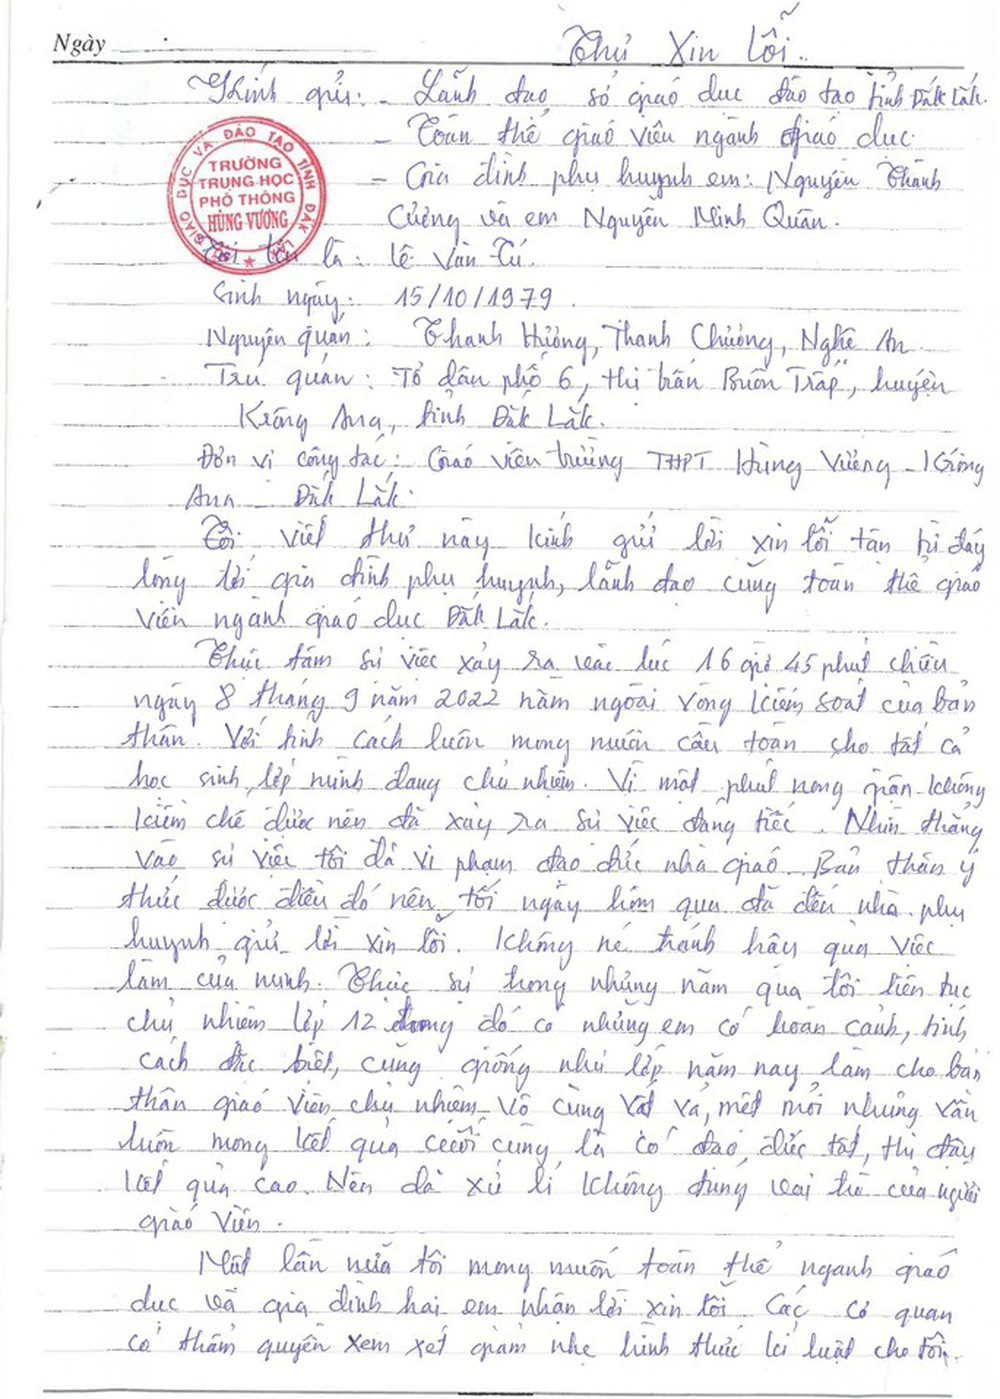 Ngày
Thư Xin lỗi.
Kính gửi: - Lãnh đạo sở giáo dục đào tạo tỉnh Đắk Lắk.
- Toàn thể giáo viên ngành giáo dục.
- Gia đình phụ huynh em: Nguyễn Thành
Cương và em Nguyễn Minh Quân.
SỞ GIÁO DỤC VÀ ĐÀO TẠO TỈNH ĐẮK LẮK
TRƯỜNG
TRUNG HỌC
PHỔ THÔNG
HÙNG VƯƠNG
Tôi tên là: Lê Văn Tú.
Sinh ngày: 15/10/1979.
Nguyên quán: Thanh Hương, Thanh Chương, Nghệ An.
Trú quán: Tổ dân phố 6, thị trấn Buôn Trấp, huyện
Krông Ana, tỉnh Đắk Lắk.
Đơn vị công tác: Giáo viên trường THPT Hùng Vương - Krông
Ana - Đắk Lắk.
Tôi viết thư này kính gửi lời xin lỗi tận từ đáy
lòng tới gia đình phụ huynh, lãnh đạo cùng toàn thể giáo
viên ngành giáo dục Đắk Lắk.
Thực tâm sự việc xảy ra vào lúc 16 giờ 45 phút chiều
ngày 8 tháng 9 năm 2022 nằm ngoài vòng kiểm soát của bản
thân. Với tính cách luôn mong muốn cầu toàn cho tất cả
học sinh lớp mình đang chủ nhiệm. Vì một phút nóng giận không
kiềm chế được nên đã xảy ra sự việc đáng tiếc. Nhìn thẳng
vào sự việc tôi đã vi phạm đạo đức nhà giáo. Bản thân ý
thức được điều đó nên tối ngày hôm qua đã đến nhà phụ
huynh gửi lời xin lỗi. Không né tránh hậu quả việc
làm của mình. Thực sự trong những năm qua tôi liên tục
chủ nhiệm lớp 12 trong đó có những em có hoàn cảnh, tính
cách đặc biệt, cũng giống như lớp năm nay làm cho bản
thân giáo viên chủ nhiệm vô cùng vất vả, mệt mỏi nhưng vẫn
luôn mong kết quả cuối cùng là có đạo đức tốt, thi đậu
kết quả cao. Nên đã xử lí không đúng vai trò của người
giáo viên.
Một lần nữa tôi mong muốn toàn thể ngành giáo
dục và gia đình hai em nhận lời xin lỗi. Các cơ quan
có thẩm quyền xem xét giảm nhẹ hình thức kỉ luật cho tôi.